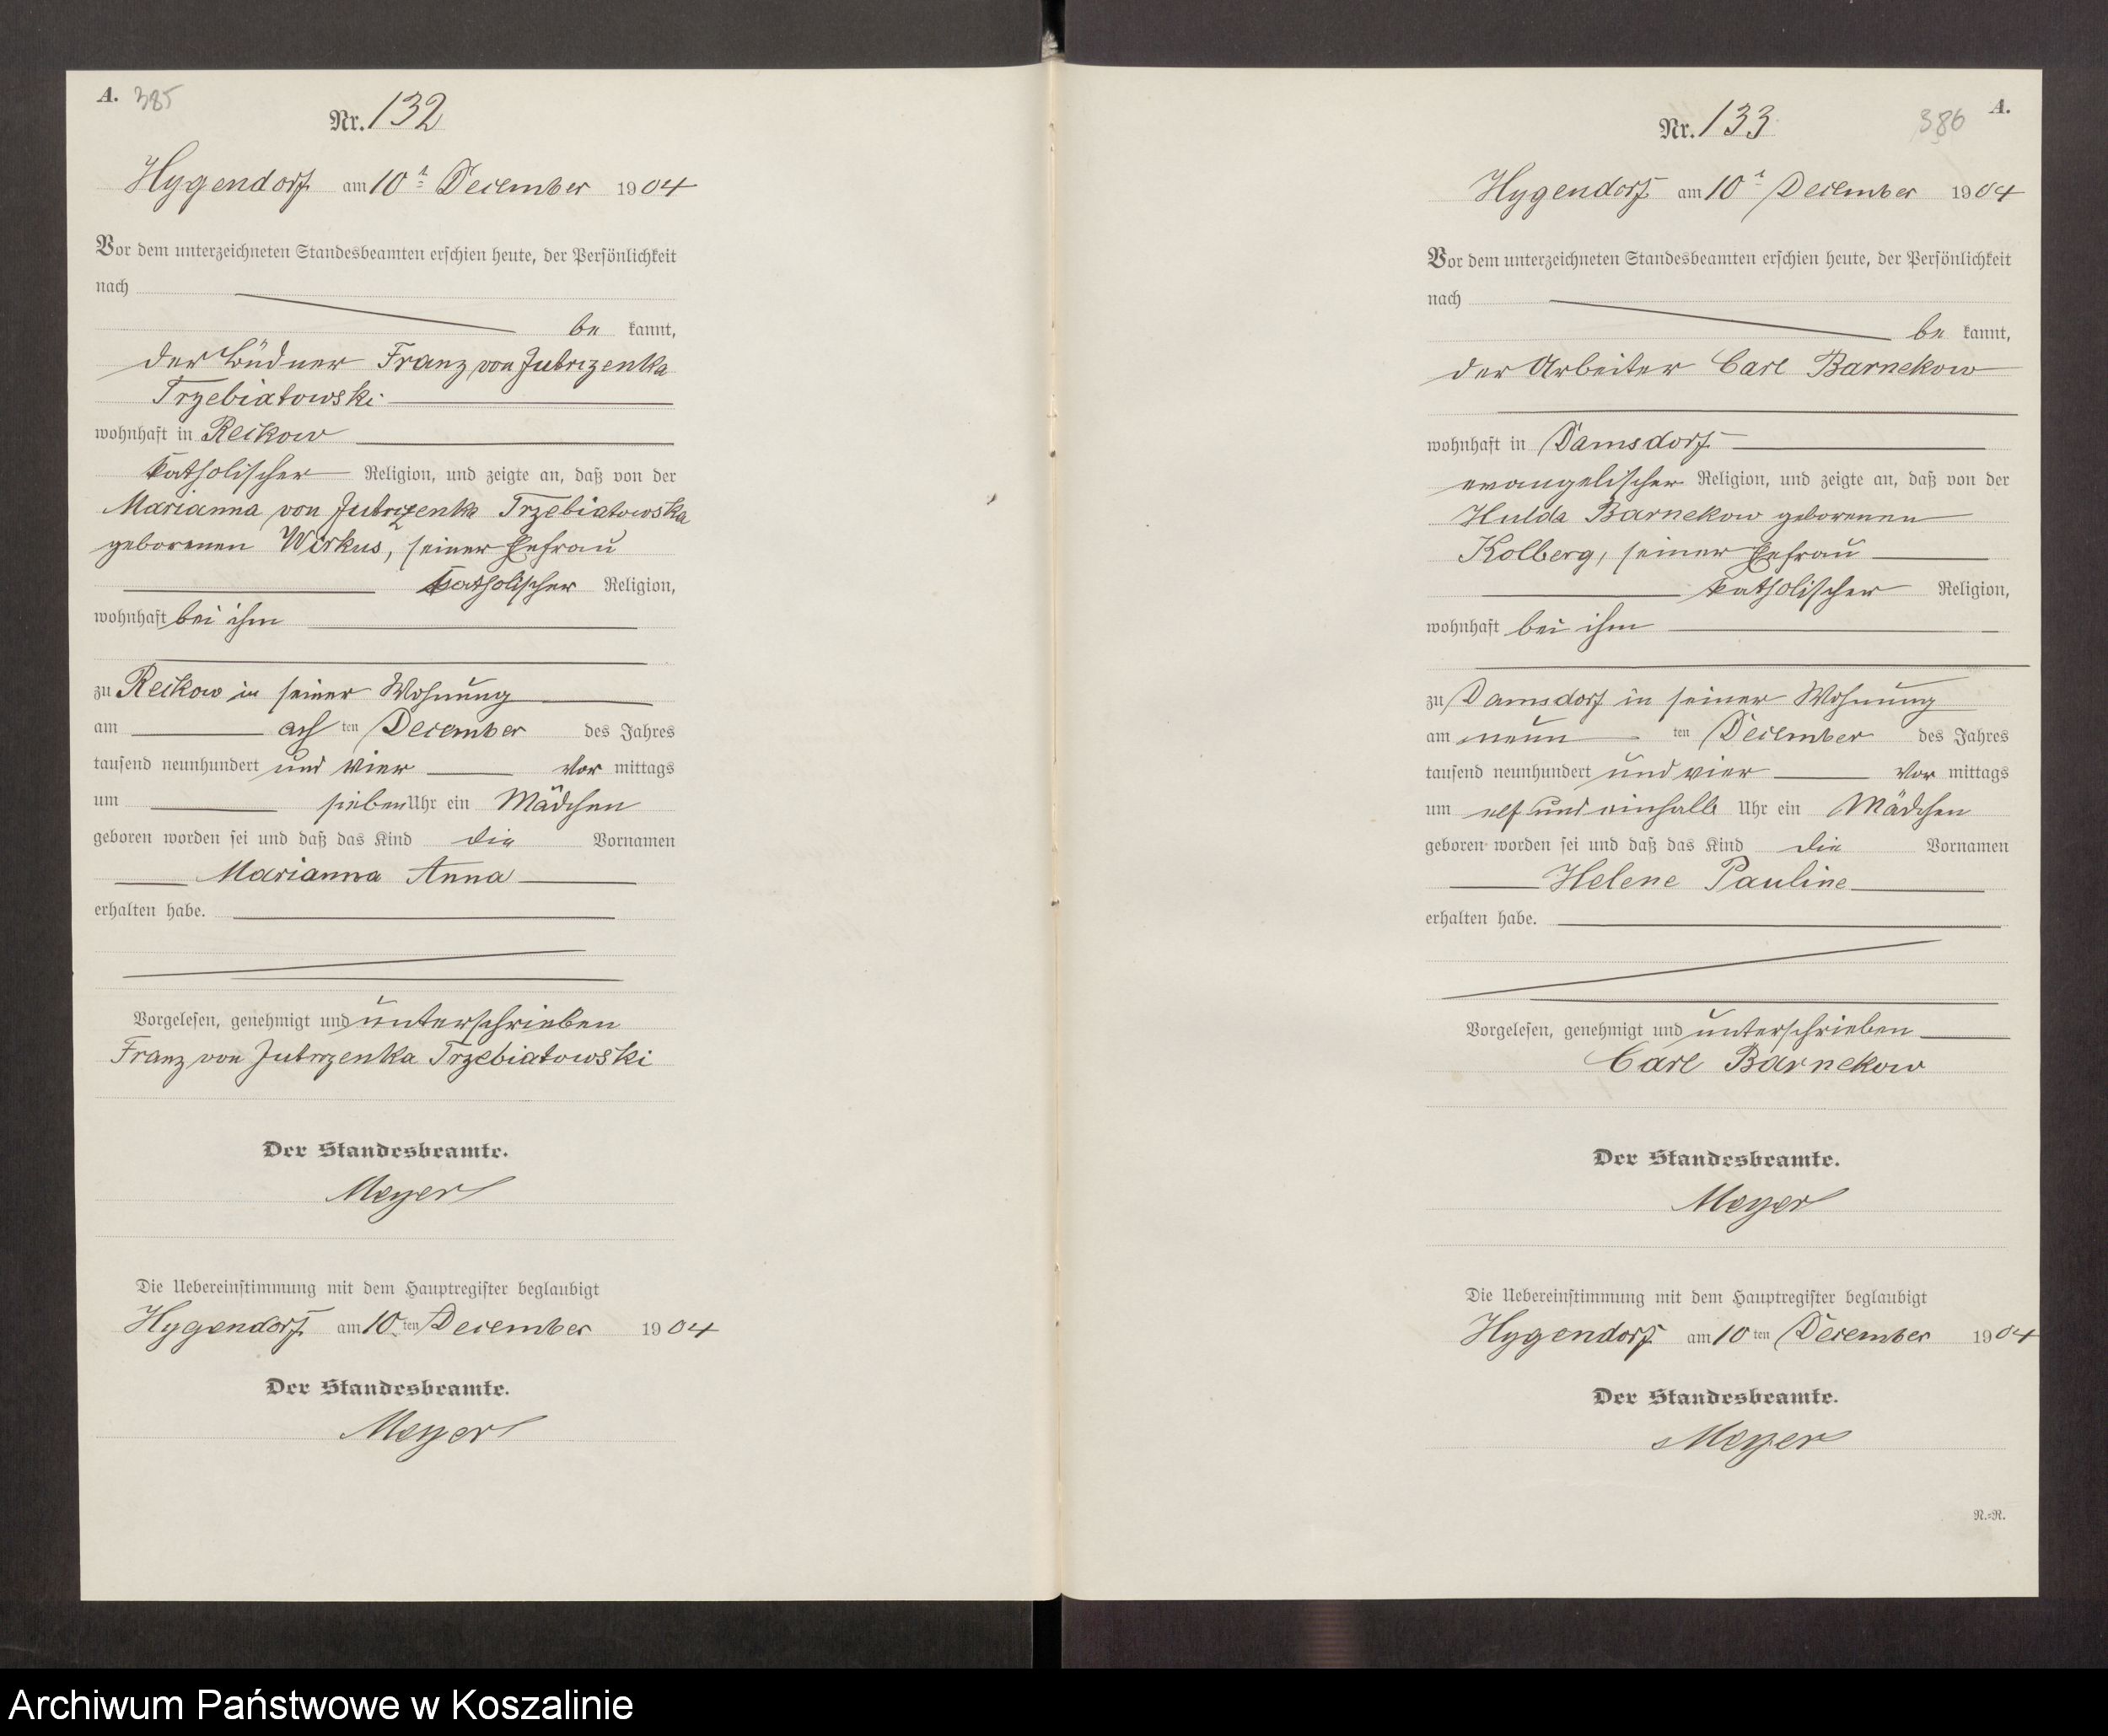 A. 385
Nr. 132
Hygendorf am 10t December 1904
Vor dem unterzeichneten Standesbeamten erschien heute, der Persönlichkeit
nach
be kannt,
der Büdner Franz von Jutrzenka
Trzebiatowski
wohnhaft in Reckow
katholischer Religion, und zeigte an, daß von der
Marianna von Jutrzenka Trzebiatowska
geborenen Wirkus, seiner Ehefrau
katholischer Religion,
wohnhaft bei ihm
zu Reckow in seiner Wohnung
am ach ten December des Jahres
tausend neunhundert und vier Vor mittags
um sieben Uhr ein Mädchen
geboren worden sei und daß das Kind die Vornamen
Marianna Anna
erhalten habe.
Vorgelesen, genehmigt und unterschrieben
Franz von Jutrzenka Trzebiatowski
Der Standesbeamte.
Meyer
Die Uebereinstimmung mit dem Hauptregister beglaubigt
Hygendorf am 10. ten December 1904
Der Standesbeamte.
Meyer
A.
386
Nr. 133
Hygendorf am 10t December 1904
Vor dem unterzeichneten Standesbeamten erschien heute, der Persönlichkeit
nach
be kannt,
der Arbeiter Carl Barnekow
wohnhaft in Damsdorf
evangelischer Religion, und zeigte an, daß von der
Hulda Barnekow geborenen
Kolberg, seiner Ehefrau
katholischer Religion,
wohnhaft bei ihm
zu Damsdorf in seiner Wohnung
am neun ten December des Jahres
tausend neunhundert und vier Vor mittags
um elf und einhalb Uhr ein Mädchen
geboren worden sei und daß das Kind die Vornamen
Helene Pauline
erhalten habe.
Vorgelesen, genehmigt und unterschrieben
Carl Barnekow
Der Standesbeamte.
Meyer
Die Uebereinstimmung mit dem Hauptregister beglaubigt
Hygendorf am 10 ten December 1904
Der Standesbeamte.
Meyer
N.=N.
Archiwum Państwowe w Koszalinie